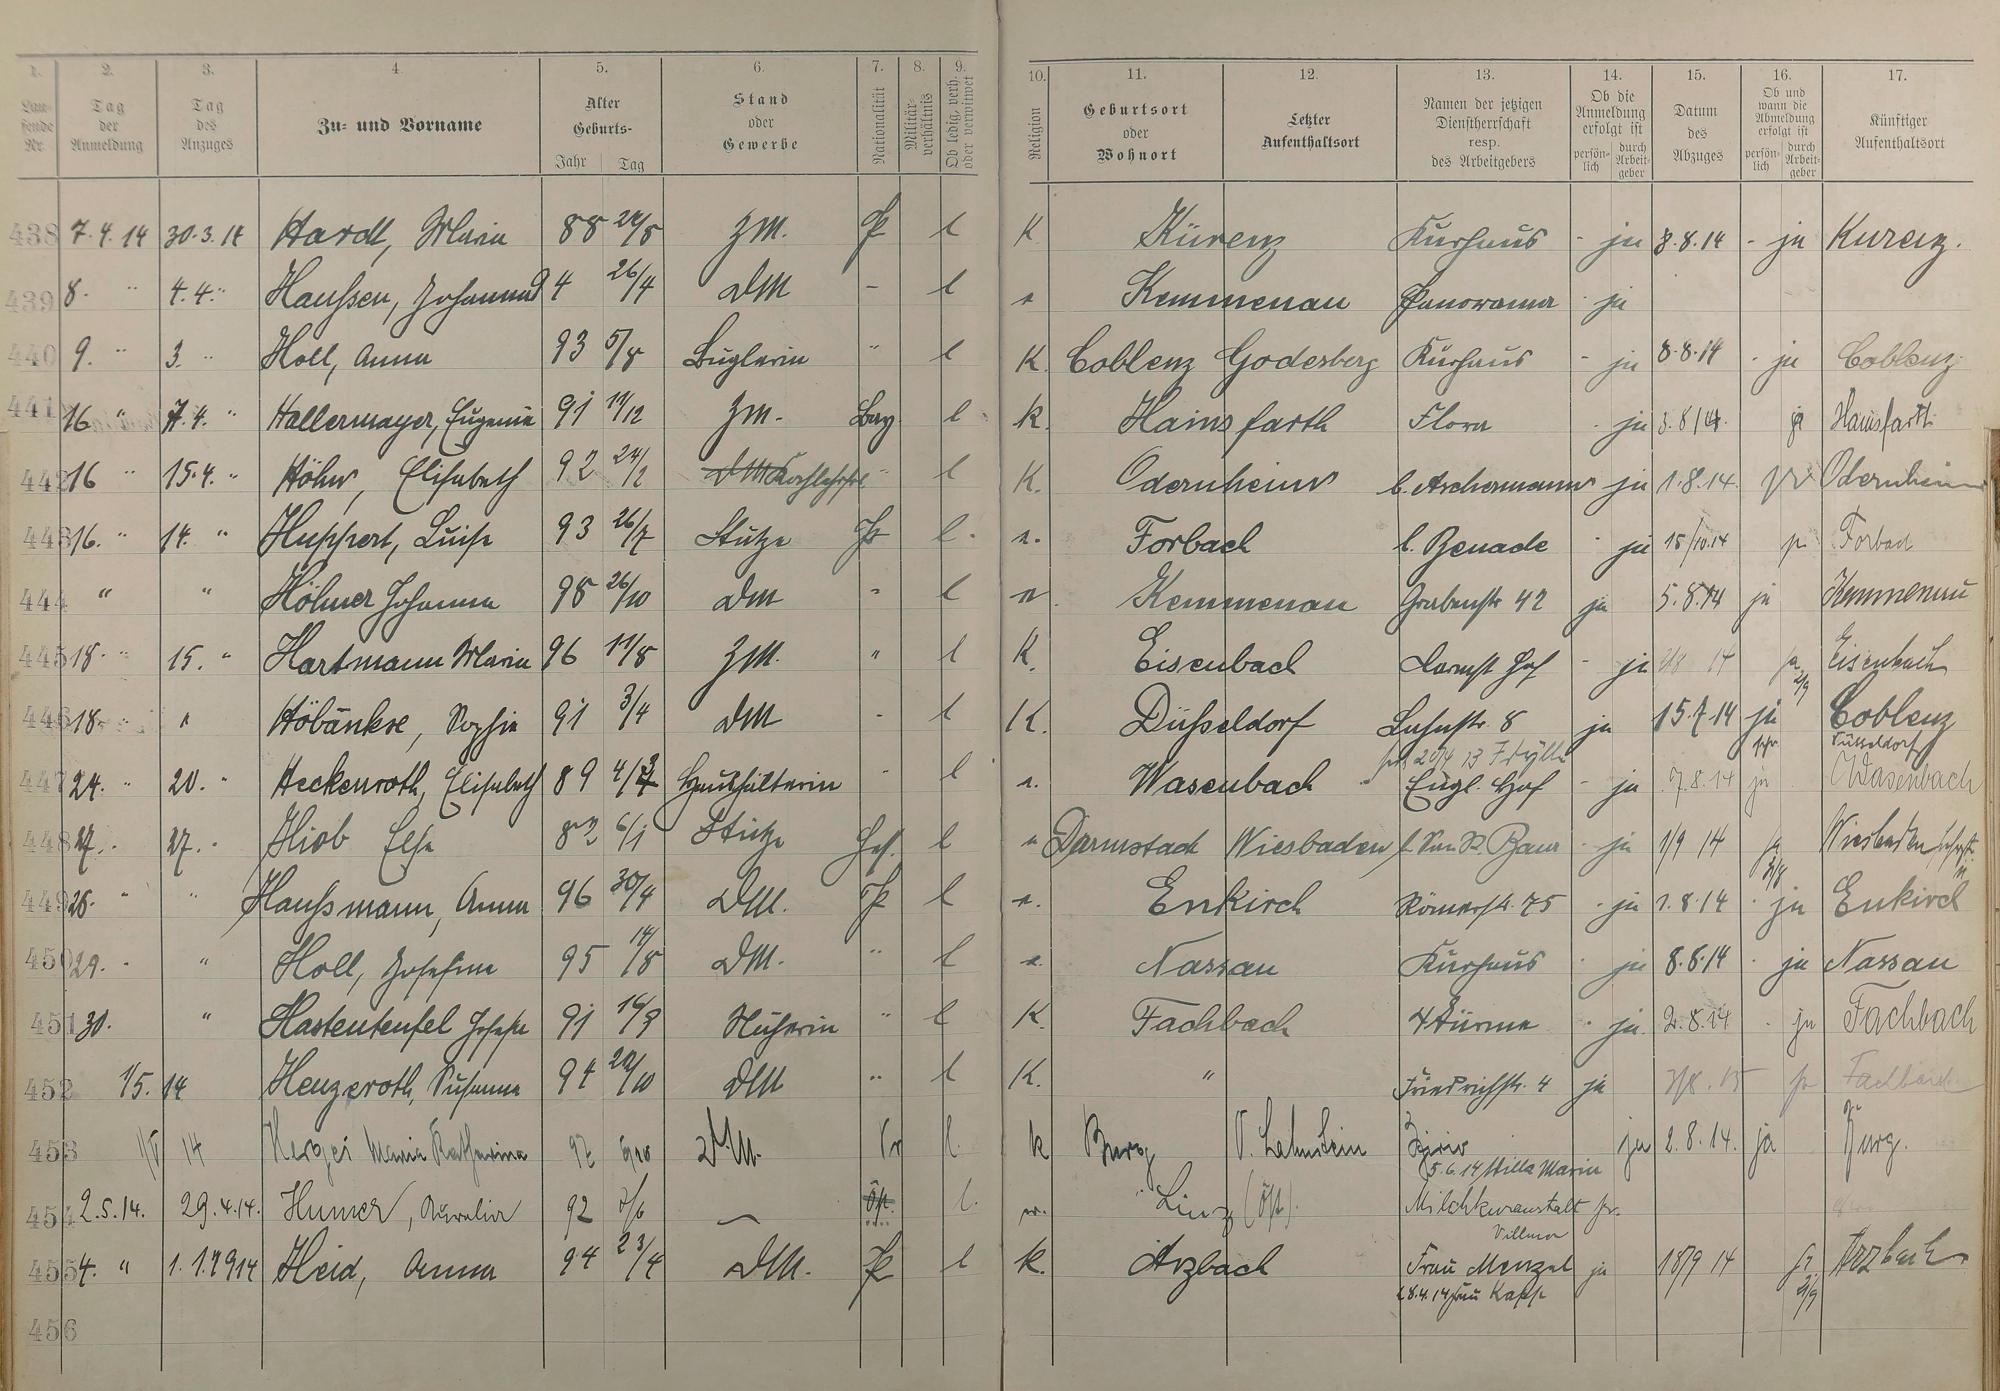 1. 2. 3. 4. 5. 6. 7. 8. 9. 10. 11. 12. 13. 14. 15. 16. 17.
Laufende Nr. Tag der Anmeldung Tag des Anzuges Zu- und Vorname Alter Geburts- Jahr Tag Stand oder Gewerbe Nationalität Militärverhältnis Ob ledig, verh. oder verwitwet Religion Geburtsort oder Wohnort Letzter Aufenthaltsort Namen der jetzigen Dienstherrschaft resp. des Arbeitgebers Ob die Anmeldung erfolgt ist persönlich durch Arbeitgeber Datum des Abzuges Ob und wann die Abmeldung erfolgt ist persönlich durch Arbeitgeber Künftiger Aufenthaltsort
438 7.4.14 30.3.14 Hardt, Maria 88 24/8 ZM. P l K Kürenz Kurhaus - ja 8.8.14 - ja Kurenz.
439 8. " 4.4. " Haußen, Johanna 94 26/4 DM - l Kemmenau Panorama - ja
440 9. " 3. " Holl, Anna 93 5/8 Büglerin " l K. Coblenz Godesberg Kurhaus - ja 8.8.14 - ja Coblenz
441 16 " 7.4. " Hallermayer, Eugenie 91 19/12 ZM. Bay l K. Hainsfarth Flora - ja 3.8/14. ja Hainsfarth
442 16 " 15.4. " Höhn, Elisabeth 92 24/2 DM Kochlehrfrl " l K. Odernheim b. Aschermann ja 1.8.14. Odernheim
443 16. " 14. " Huppert, Luise 93 26/7 Stütze P l. Forbach b. Benade - ja 15/10.14 Forbach
444 " " Höhner Johanna 98 26/10 DM " l Kemmenau Grabenstr 42 ja 5.8.14 ja Kemmenau
445 18. " 15. " Hartmann Maria 96 11/8 ZM. " l K. Eisenbach Darmst Hof - ja 14 2/9 Eisenbach
446 18. " " Höbänkse, Sophie 91 3/4 DM - l K. Düsseldorf Lahnstr. 8 ja 15.7.14 ja Coblenz
Düsseldorf
20/4 13 Idylle
447 24. " 20. " Heckenroth, Elisabeth 89 Haushälterin " l Wasenbach Engl. Hof - ja 7.8.14 ja Wasenbach
448 27. " 27. " Hiob Else 83 6/1 Stütze Hes. l Darmstad Wiesbaden Baur - ja 1/9 14 Wiesbaden
449 28. " " Haußmann, Anna 96 30/4 DM. P l Enkirch Römerstr. 75 - ja 1.8.14 - ja Enkirch
450 29. " " Holl, Josefine 95 14/8 DM. " l Nassau Kurhaus - ja 8.8.14 - ja Nassau
451 30. " Hastenteufel Josefe 91 Näherin " l K. Fachbach 4 Türme - ja. 2.8.14 - ja Fachbach
452 1/5. 14 Henzeroth, Susanna 94 20/10 DM " l K. " Friedrichstr. 4 ja Fachbach
453 1/5 14 Maria Katharina DM. Pr l. k Burg N. Lahnstein ja 2.8.14. ja Burg.
5.6.14 Villa Maria
454 2.5.14. 29.4.14. Humer, Aurelia 92 Öst. l. Linz (Öst). Milchkuranstalt
Villmar
455 4. " 1.1.1914 Heid, Anna 94 23/4 DM. P l k. Arzbach Frau Menzel ja 18/9 14 Arzbach
28.4.14 Frau Kapp 2/9
456